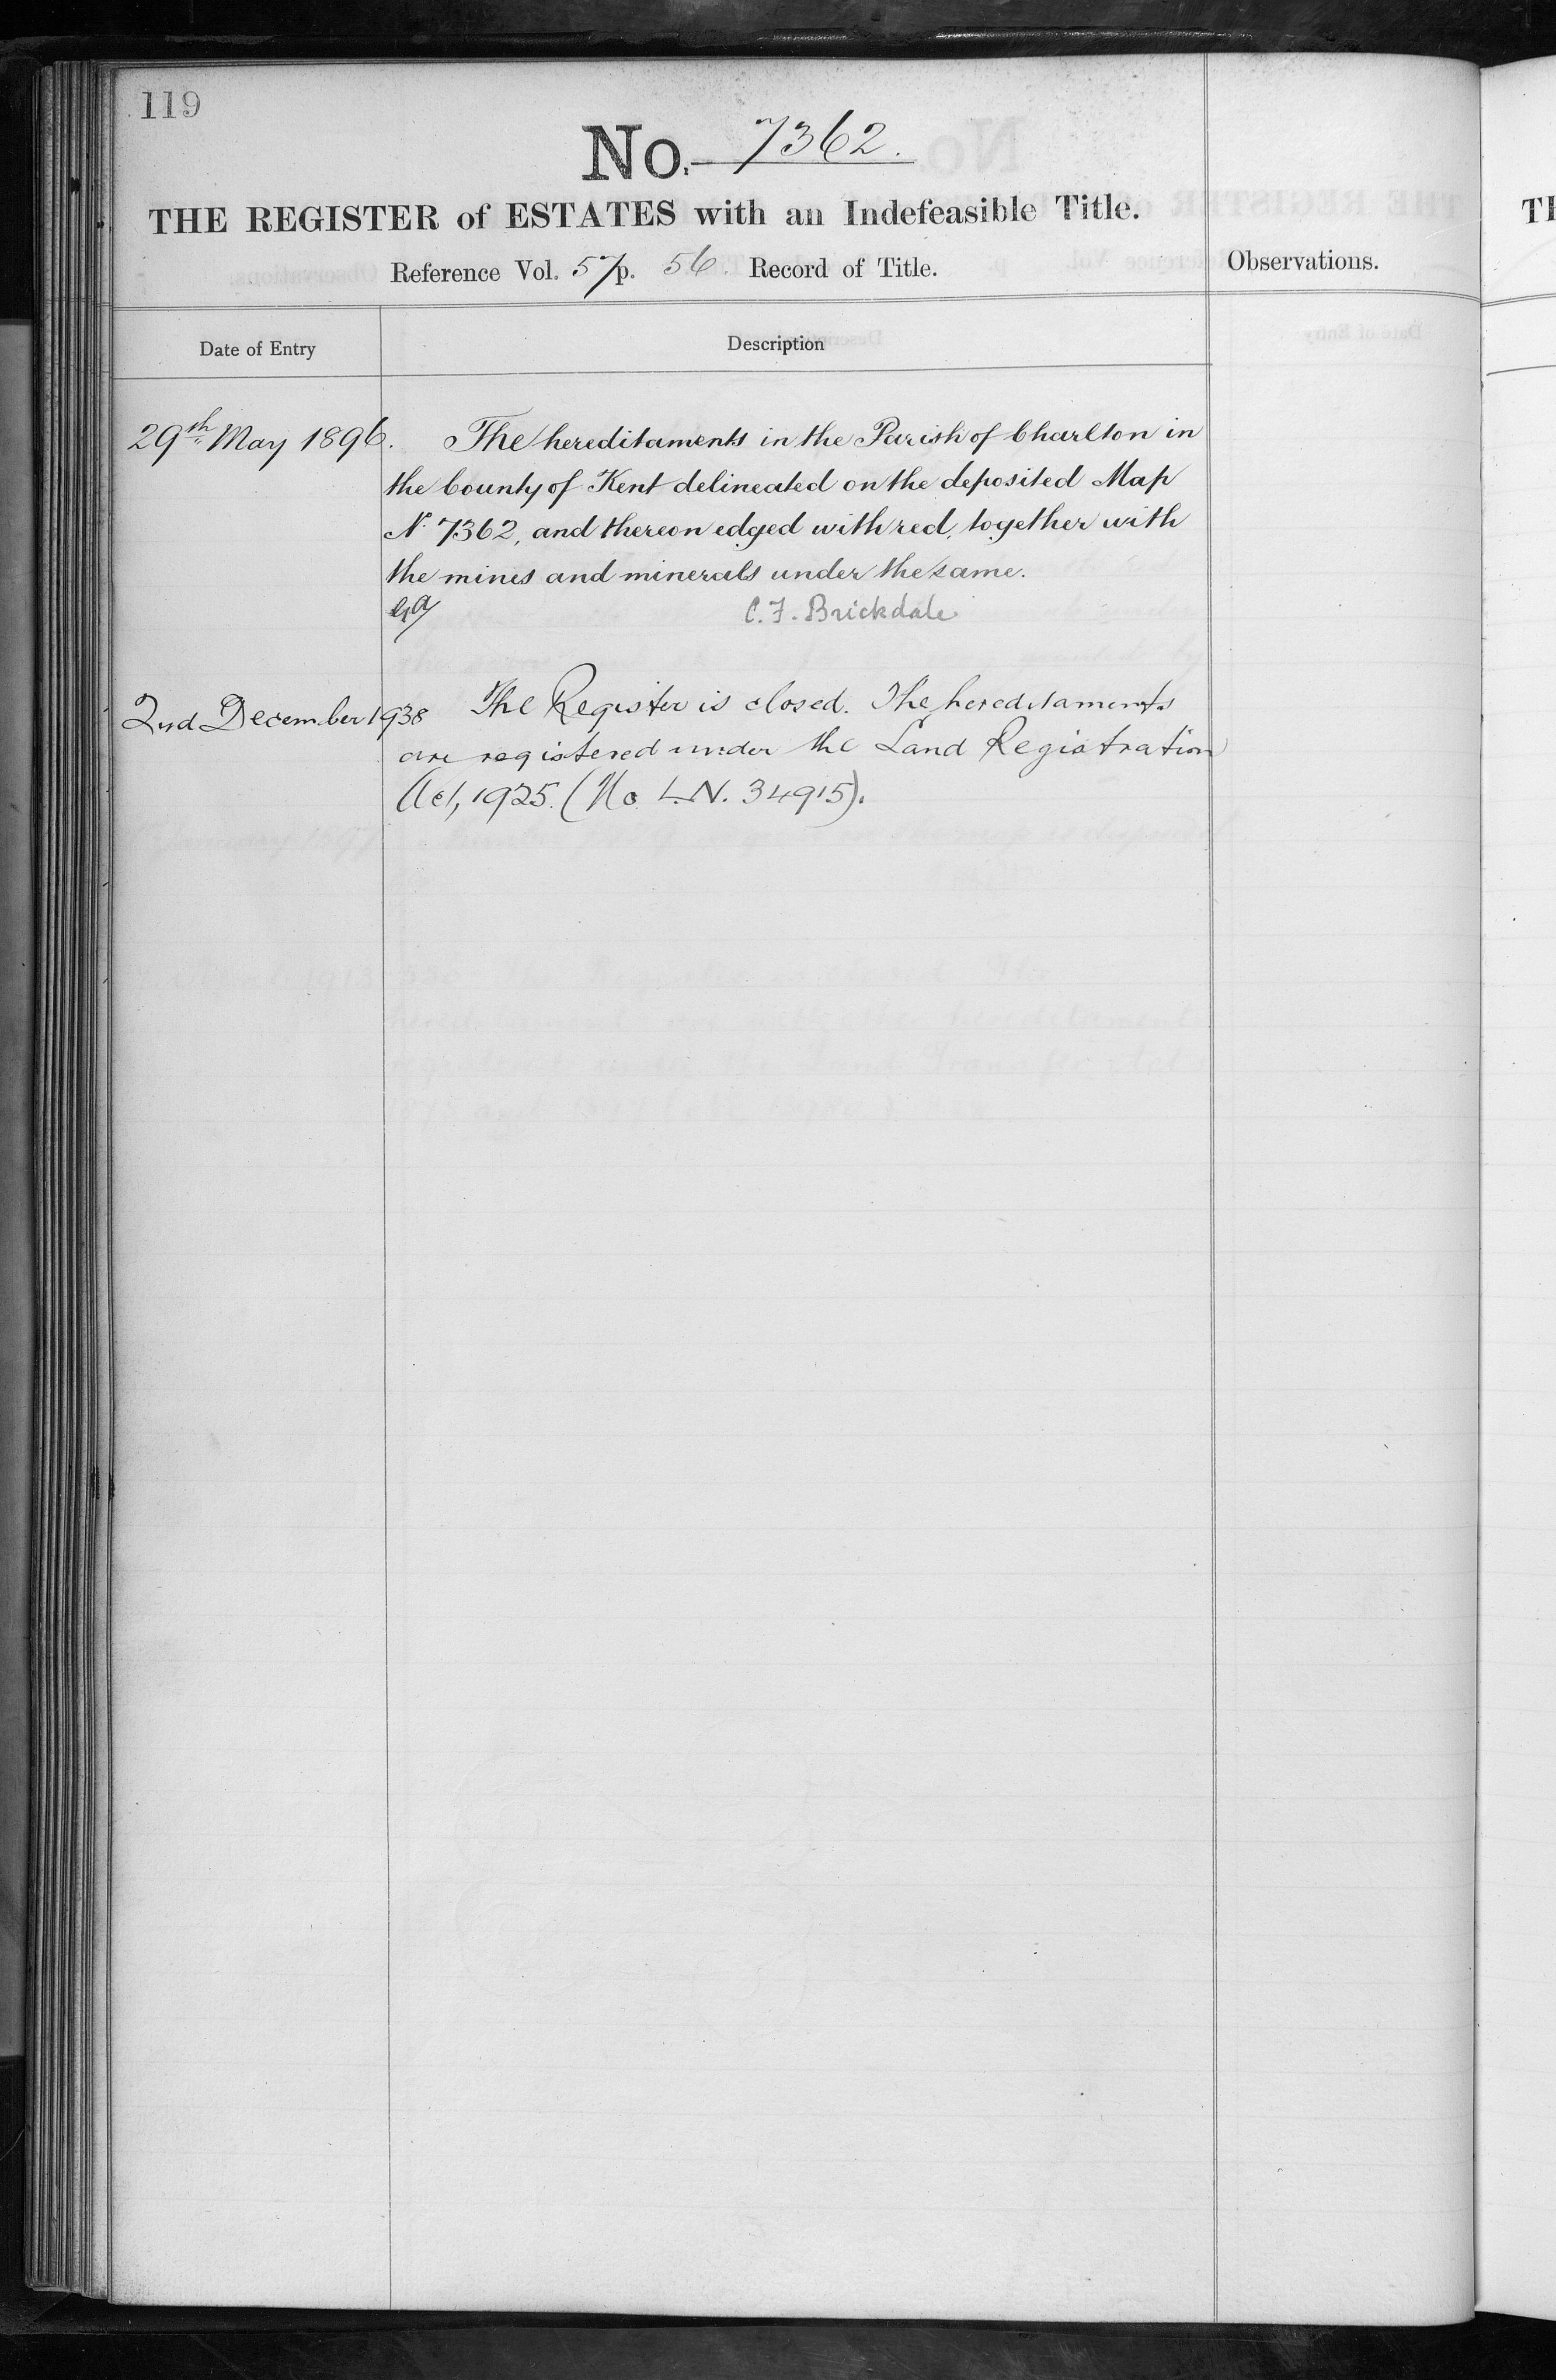 119
No. 7362.
THE REGISTER of ESTATES with an Indefeasible Title.
Reference Vol. 57 p. 56. Record of Title.
Observations.
Date of Entry
Description
29th May 1896. The hereditaments in the Parish of Charlton in
the County of Kent delineated on the deposited Map
No. 7362, and thereon edged with red, together with
the mines and minerals under the same.
C. F. Brickdale
2nd December 1938 The Register is closed. The hereditaments
are registered under the Land Registration
Act, 1925. (No. L.N. 34915).